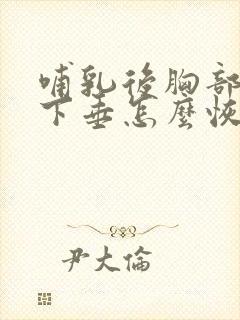 哺乳後胸部
下垂怎麼恢
尹大倫